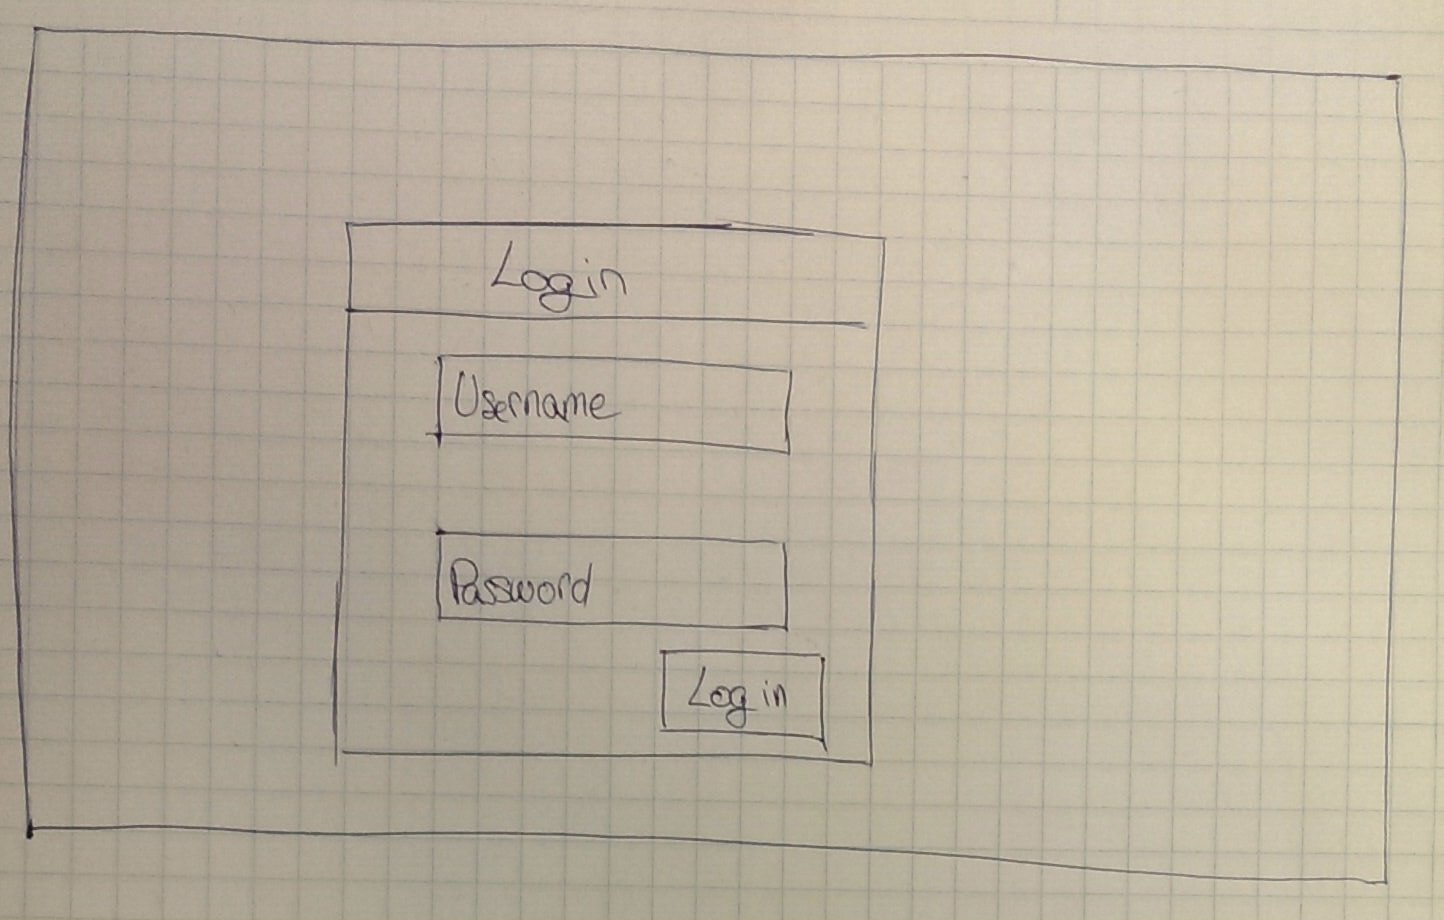 Login
Username
Password
Log in